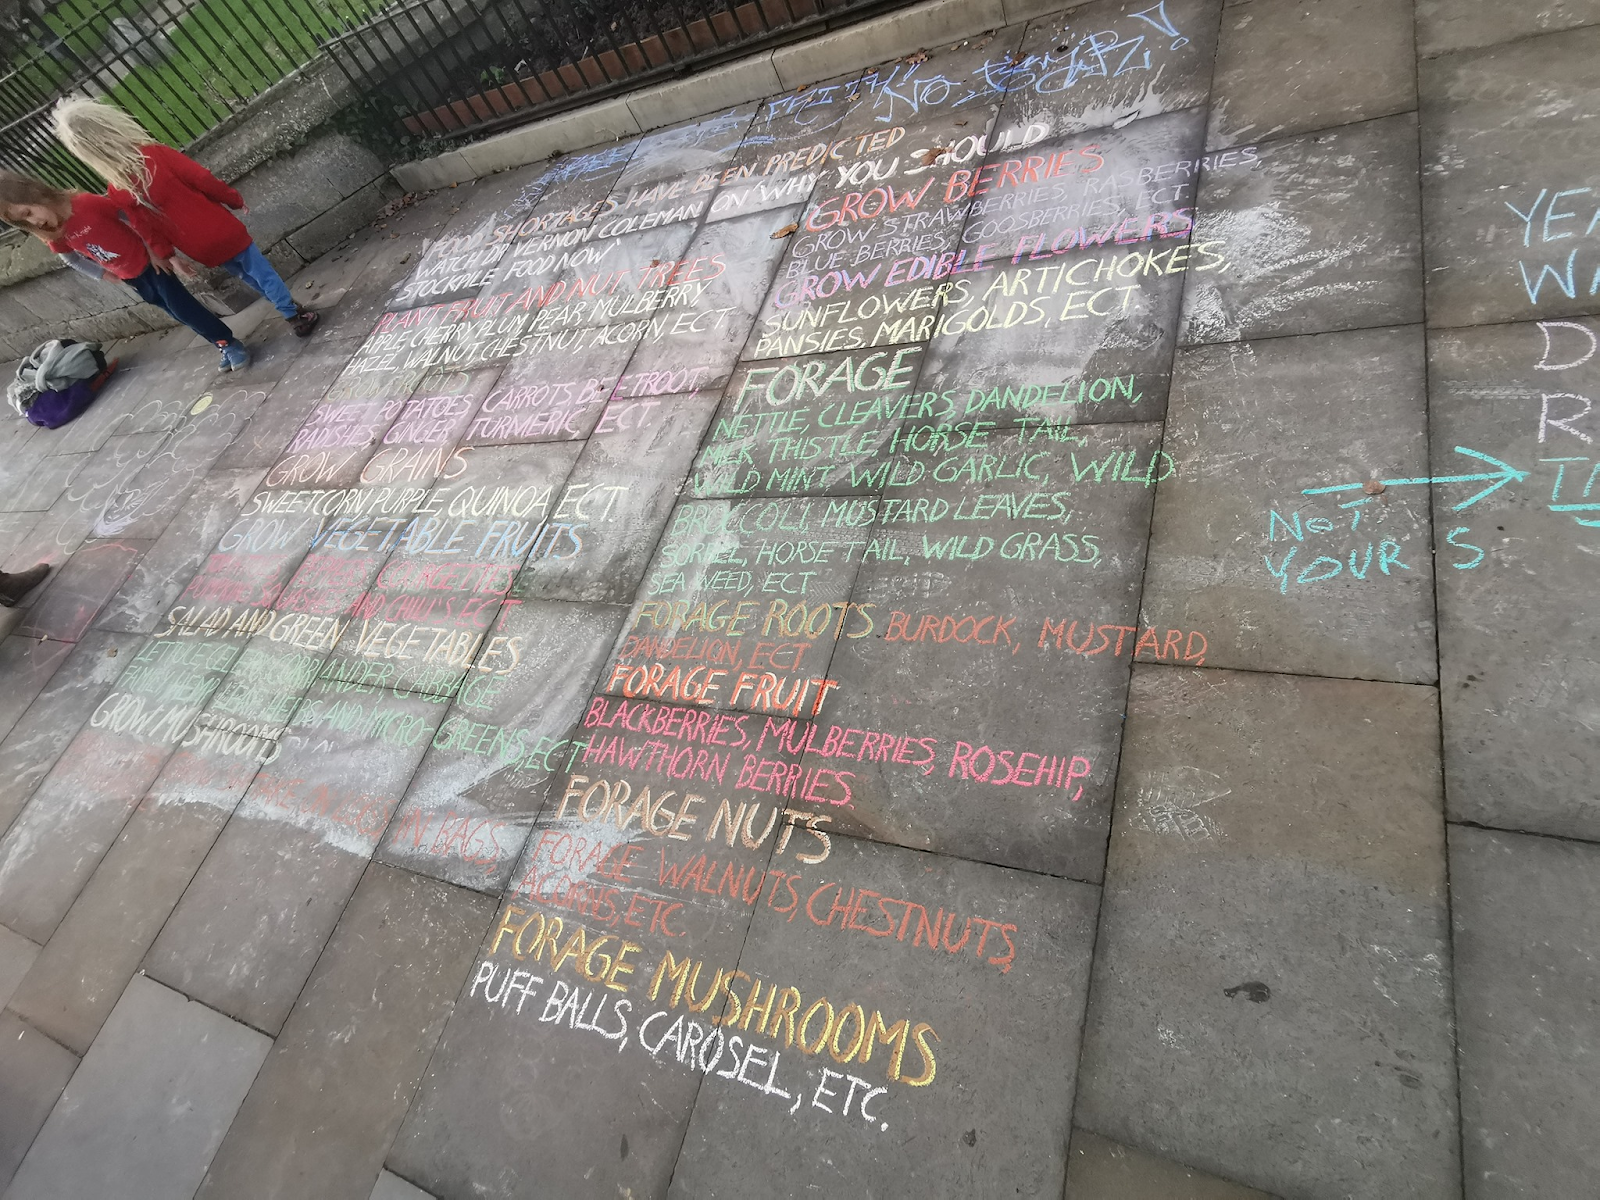 NO
FOOD SHORTAGES HAVE BEEN PREDICTED
WATCH DR VERNON COLEMAN ON WHY YOU SHOULD
STOCKPILE FOOD NOW
PLANT FRUIT AND NUT TREES
APPLE CHERRY PLUM PEAR MULBERRY
HAZEL, WALNUT CHESTNUT, ACORN, ECT.
SWEET POTATOES CARROTS, BEETROOT,
RADISHES, GINGER TURMERIC, ECT.
GROW GRAINS
SWEETCORN PURPLE, QUINOA, ECT.
GROW VEGETABLE FRUITS
AND CHILLIS ECT
SALAD AND GREEN VEGETABLES
CORRIANDER CABBAGE
AND MICRO-GREENS, ECT
GROW MUSHROOMS
IN BAGS,
GROW BERRIES
GROW STRAWBERRIES, RASBERRIES,
BLUE BERRIES, GOOSBERRIES, ECT.
GROW EDIBLE FLOWERS
SUNFLOWERS, ARTICHOKES,
PANSIES, MARIGOLDS, ECT.
FORAGE
NETTLE, CLEAVERS, DANDELION,
MILK THISTLE, HORSE TAIL,
WILD MINT, WILD GARLIC, WILD
BROCCOLI, MUSTARD LEAVES,
SORREL, HORSE TAIL, WILD GRASS,
SEA WEED, ECT
FORAGE ROOTS BURDOCK, MUSTARD,
DANDELION, ECT
FORAGE FRUIT
BLACKBERRIES, MULBERRIES, ROSEHIP,
HAWTHORN BERRIES.
FORAGE NUTS
FORAGE WALNUTS, CHESTNUTS,
ACORNS, ETC.
FORAGE MUSHROOMS
PUFF BALLS, CAROSEL, ETC.
YEA
WA
D
R
NOT
YOURS